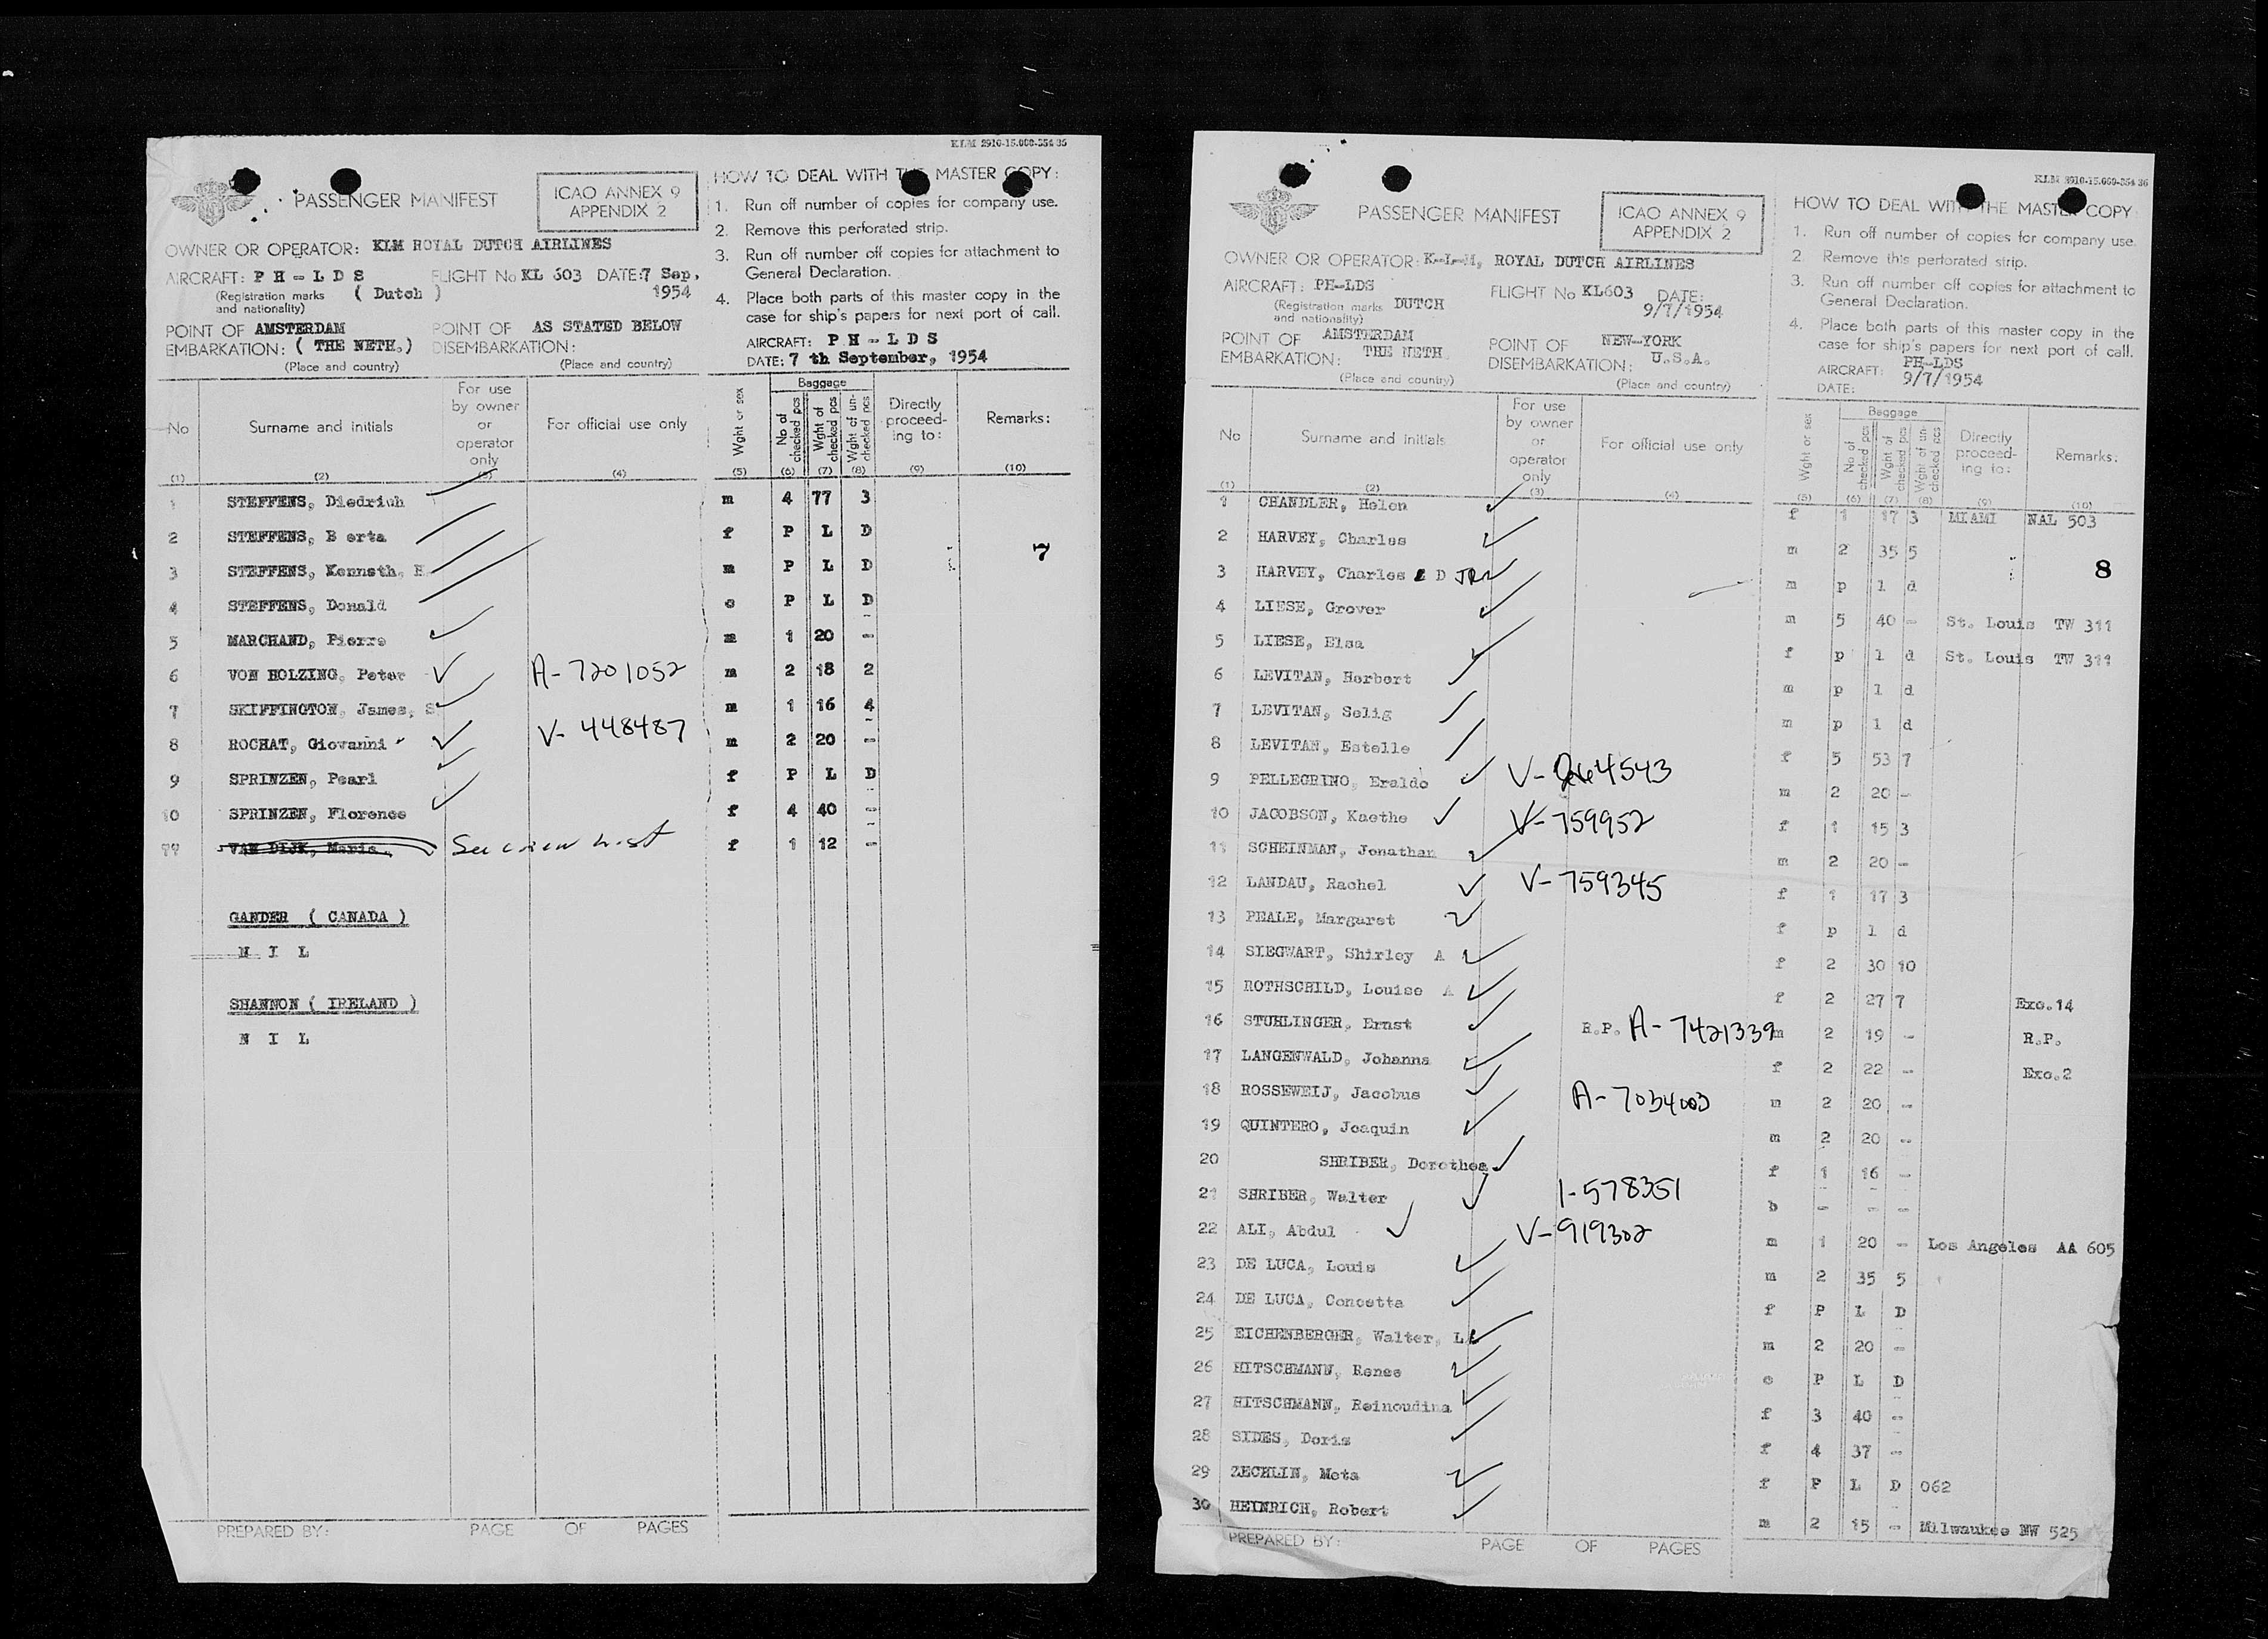 KLM 2910-15.000-354 35
PASSENGER MANIFEST
ICAO ANNEX 9
APPENDIX 2
OWNER OR OPERATOR: KLM ROYAL DUTCH AIRLINES
AIRCRAFT: P H - L D S FLIGHT No KL 603 DATE: 7 Sep. 1954
(Registration marks and nationality) ( Dutch )
POINT OF EMBARKATION: AMSTERDAM ( THE NETH.) POINT OF DISEMBARKATION: AS STATED BELOW
(Place and country) (Place and country)
HOW TO DEAL WITH THE MASTER COPY:
1. Run off number of copies for company use.
2. Remove this perforated strip.
3. Run off number off copies for attachment to
General Declaration.
4. Place both parts of this master copy in the
case for ship's papers for next port of call.
AIRCRAFT: P H - L D S
DATE: 7 th September, 1954
No Surname and initials For use by owner or operator only For official use only Wght or sex Baggage No of checked pcs Wght of checked pcs Wght of un-checked pcs Directly proceed-ing to: Remarks:
(1) (2) (3) (4) (5) (6) (7) (8) (9) (10)
1 STEFFENS, Diedrich m 4 77 3
2 STEFFENS, B erta f P L D
3 STEFFENS, Kenneth, H m P L D 7
4 STEFFENS, Donald c P L D
5 MARCHAND, Pierre m 1 20 -
6 VON HOLZING, Peter A-7201052 m 2 18 2
7 SKIFFINGTON, James, S m 1 16 4
8 ROCHAT, Giovanni V-448487 m 2 20 -
9 SPRINZEN, Pearl f P L D
10 SPRINZEN, Florence f 4 40 -
11 VAN DIJK, Maria. See crew list f 1 12 -
GANDER ( CANADA )
N I L
SHANNON ( IRELAND )
N I L
PREPARED BY: PAGE OF PAGES
KLM 2910-15.000-354 36
PASSENGER MANIFEST
ICAO ANNEX 9
APPENDIX 2
OWNER OR OPERATOR: K-L-M, ROYAL DUTCH AIRLINES
AIRCRAFT: PH-LDS FLIGHT No KL603 DATE: 9/7/1954
(Registration marks and nationality) DUTCH
POINT OF EMBARKATION: AMSTERDAM THE NETH. POINT OF DISEMBARKATION: NEW-YORK U.S.A.
(Place and country) (Place and country)
HOW TO DEAL WITH THE MASTER COPY
1. Run off number of copies for company use.
2. Remove this perforated strip.
3. Run off number off copies for attachment to
General Declaration.
4. Place both parts of this master copy in the
case for ship's papers for next port of call.
AIRCRAFT: PH-LDS
DATE: 9/7/1954
No Surname and initials For use by owner or operator only For official use only Wght or sex Baggage No of checked pcs Wght of checked pcs Wght of un-checked pcs Directly proceed-ing to: Remarks:
(1) (2) (3) (4) (5) (6) (7) (8) (9) (10)
1 CHANDLER, Helen f 1 17 3 MIAMI NAL 503
2 HARVEY, Charles m 2 35 5
3 HARVEY, Charles D JR m p l d 8
4 LIESE, Grover m 5 40 - St. Louis TW 311
5 LIESE, Elsa f p l d St. Louis TW 311
6 LEVITAN, Herbert m p l d
7 LEVITAN, Selig m p l d
8 LEVITAN, Estelle f 5 53 7
9 PELLEGRINO, Eraldo V-264543 m 2 20 -
10 JACOBSON, Kaethe V-759952 f 1 15 3
11 SCHEINMAN, Jonathan m 2 20 -
12 LANDAU, Rachel V-759345 f 1 17 3
13 PEALE, Margaret f p l d
14 SIEGWART, Shirley A f 2 30 10
15 ROTHSCHILD, Louise A f 2 27 7 Exc.14
16 STUHLINGER, Ernst R.P. A-7421339 m 2 19 - R.P.
17 LANGENWALD, Johanna f 2 22 - Exc.2
18 ROSSEWEIJ, Jacobus A-7034003 m 2 20 -
19 QUINTERO, Joaquin m 2 20 -
20 SHRIBER, Dorothea f 1 16 -
21 SHRIBER, Walter 1-578351 b - - -
22 ALI, Abdul V-919302 m 1 20 - Los Angeles AA 605
23 DE LUCA, Louis m 2 35 5
24 DE LUCA, Concetta f P L D
25 EICHENBERGER, Walter, L m 2 20 -
26 HITSCHMANN, Renee c P L D
27 HITSCHMANN, Reinoudina f 3 40 -
28 SIDES, Doris f 4 37 -
29 ZECHLIN, Meta f P L D 062
30 HEINRICH, Robert m 2 15 - Milwaukee NW 525
PREPARED BY: PAGE OF PAGES